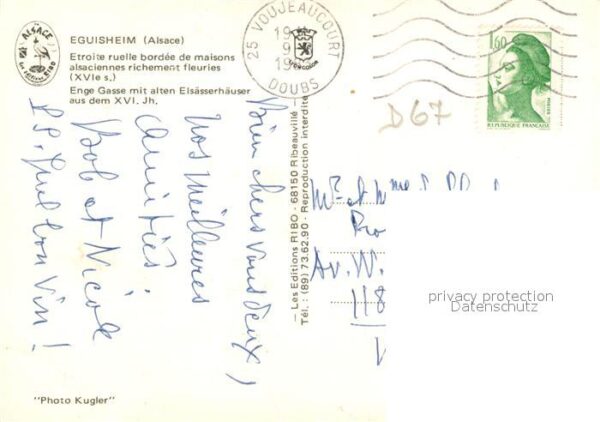 ALSACE
EGUISHEIM (Alsace)
Etroite ruelle bordée de maisons
alsaciennes richement fleuries
(XVIe s.)
Enge Gasse mit alten Elsässerhäuser
aus dem XVI. Jh.
25 VOUJEAUCOURT
DOUBS
1,60
REPUBLIQUE FRANÇAISE
D67
Bien chers vous deux,
nos meilleures
amitiés.
Bob et Nicole
P.S. Quel bon vin!
— Les Editions RIBO - 68150 Ribeauvillé
Tél.: (89) 73.62.90 - Reproduction interdite
Mr et Mme
Av. W.
118
privacy protection
Datenschutz
"Photo Kugler"